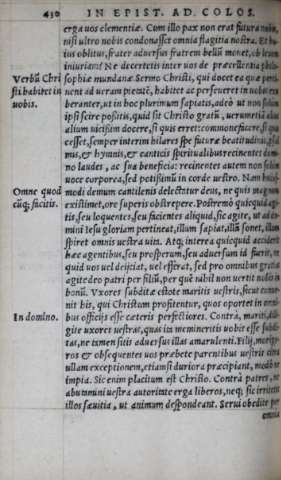 430 IN EPIST. AD. COLOS.
erga uos clementiæ. Cum illo pax non erat futura
nisi ultro uobis condonasset omnia flagitia nostra. Et
ius oblitus, frater aduersus fratrem bellũ mouet, ob
iniuriam? Ne decertetis inter uos de præcellentia
Verbũ Chri sophiæ mundanæ Sermo Christi, qui docet ea quæ
sti habitet in nent ad ueram pietatẽ, habitet ac perseueret in uobis
uobis. beranter, ut in hoc plurimum sapiatis, adeò ut non solum
ipsi scire possitis, quid sit Christo gratũ, uerumetiã
alium uicißim docere, si quis erret: commonefacere, si
cesset, semper interim hilares spe futuræ beatitudinis,
mus, & hymnis, & canticis spiritualibus recinentes
no laudes, ac sua beneficia: recinentes autem non solum
uoce corporea, sed potißimũ in corde uestro. Nam
Omne quod modi demum cantilenis delectatur deus, ne quis magnum
cũq; facitis. existimet, ore superis obstrepere. Postremò quicquid
tis, seu loquentes, seu facientes aliquid, sic agite, ut ad
mini Iesu gloriam pertineat, illum sapiat, illũ sonet,
spiret omnis uestra uita. Atq; interea quicquid acciderit
hæc agentibus, seu prosperum, seu aduersum id fuerit, ne
quid uos uel deijciat, uel efferat, sed pro omnibus gratias
agite deo patri per filiũ, per quẽ nihil non uertit nobis in
bonũ. Vxores subditæ estote maritis uestris, sicut
nit his, qui Christum profitentur, quos oportet in
In domino. bus officijs esse cæteris perfectiores. Contrà, mariti,
gite uxores uestras, quas ita memineritis uobis esse
tas, ne tamen sitis aduersus illas amarulenti. Filij,
ros & obsequentes uos præbete parentibus uestris citra
ullam exceptionem, etiamsi duriora præcipiant, modò
impia. Sic enim placitum est Christo. Contrà patres, ne
abutamini uestra autoritate erga liberos, neq; sic irritetis
illos sæuitia, ut animum despondeant. Serui obedite per
omnia